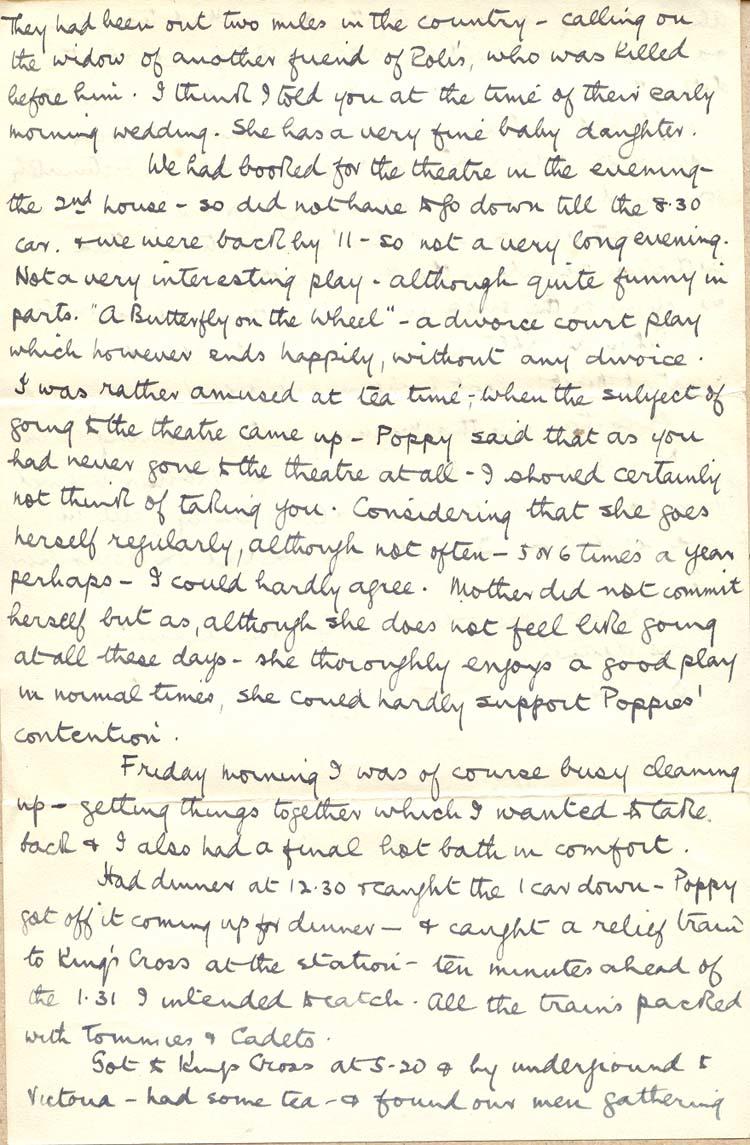 They had been out two miles in the country - calling on
the widow of another friend of Rolis, who was killed
before him. I think I told you at the time of their early
morning wedding. She has a very fine baby daughter.
We had booked for the theatre in the evening -
the 2nd house - so did not have to go down till the 8.30
car. & we were back by 11 - so not a very long evening.
Not a very interesting play - although quite funny in
parts. "A Butterfly on the Wheel" - a divorce court play
which however ends happily, without any divorce.
I was rather amused at tea time, - when the subject of
going to the theatre came up - Poppy said that as you
had never gone to the theatre at all - I should certainly
not think of taking you. Considering that she goes
herself regularly, although not often - 5 or 6 times a year
perhaps - I could hardly agree. Mother did not commit
herself but as, although she does not feel like going
at all these days - she thoroughly enjoys a good play
in normal times, she could hardly support Poppies'
contention.
Friday morning I was of course busy cleaning
up - getting things together which I wanted to take
back & I also had a final hot bath in comfort.
Had dinner at 12.30 & caught the 1 car down - Poppy
got off it coming up for dinner - & caught a relief train
to King's Cross at the station - ten minutes ahead of
the 1.31 I intended to catch. All the trains packed
with Tommies & Cadets.
Got to Kings Cross at 5-20 & by underground to
Victoria - had some tea - & found our men gathering